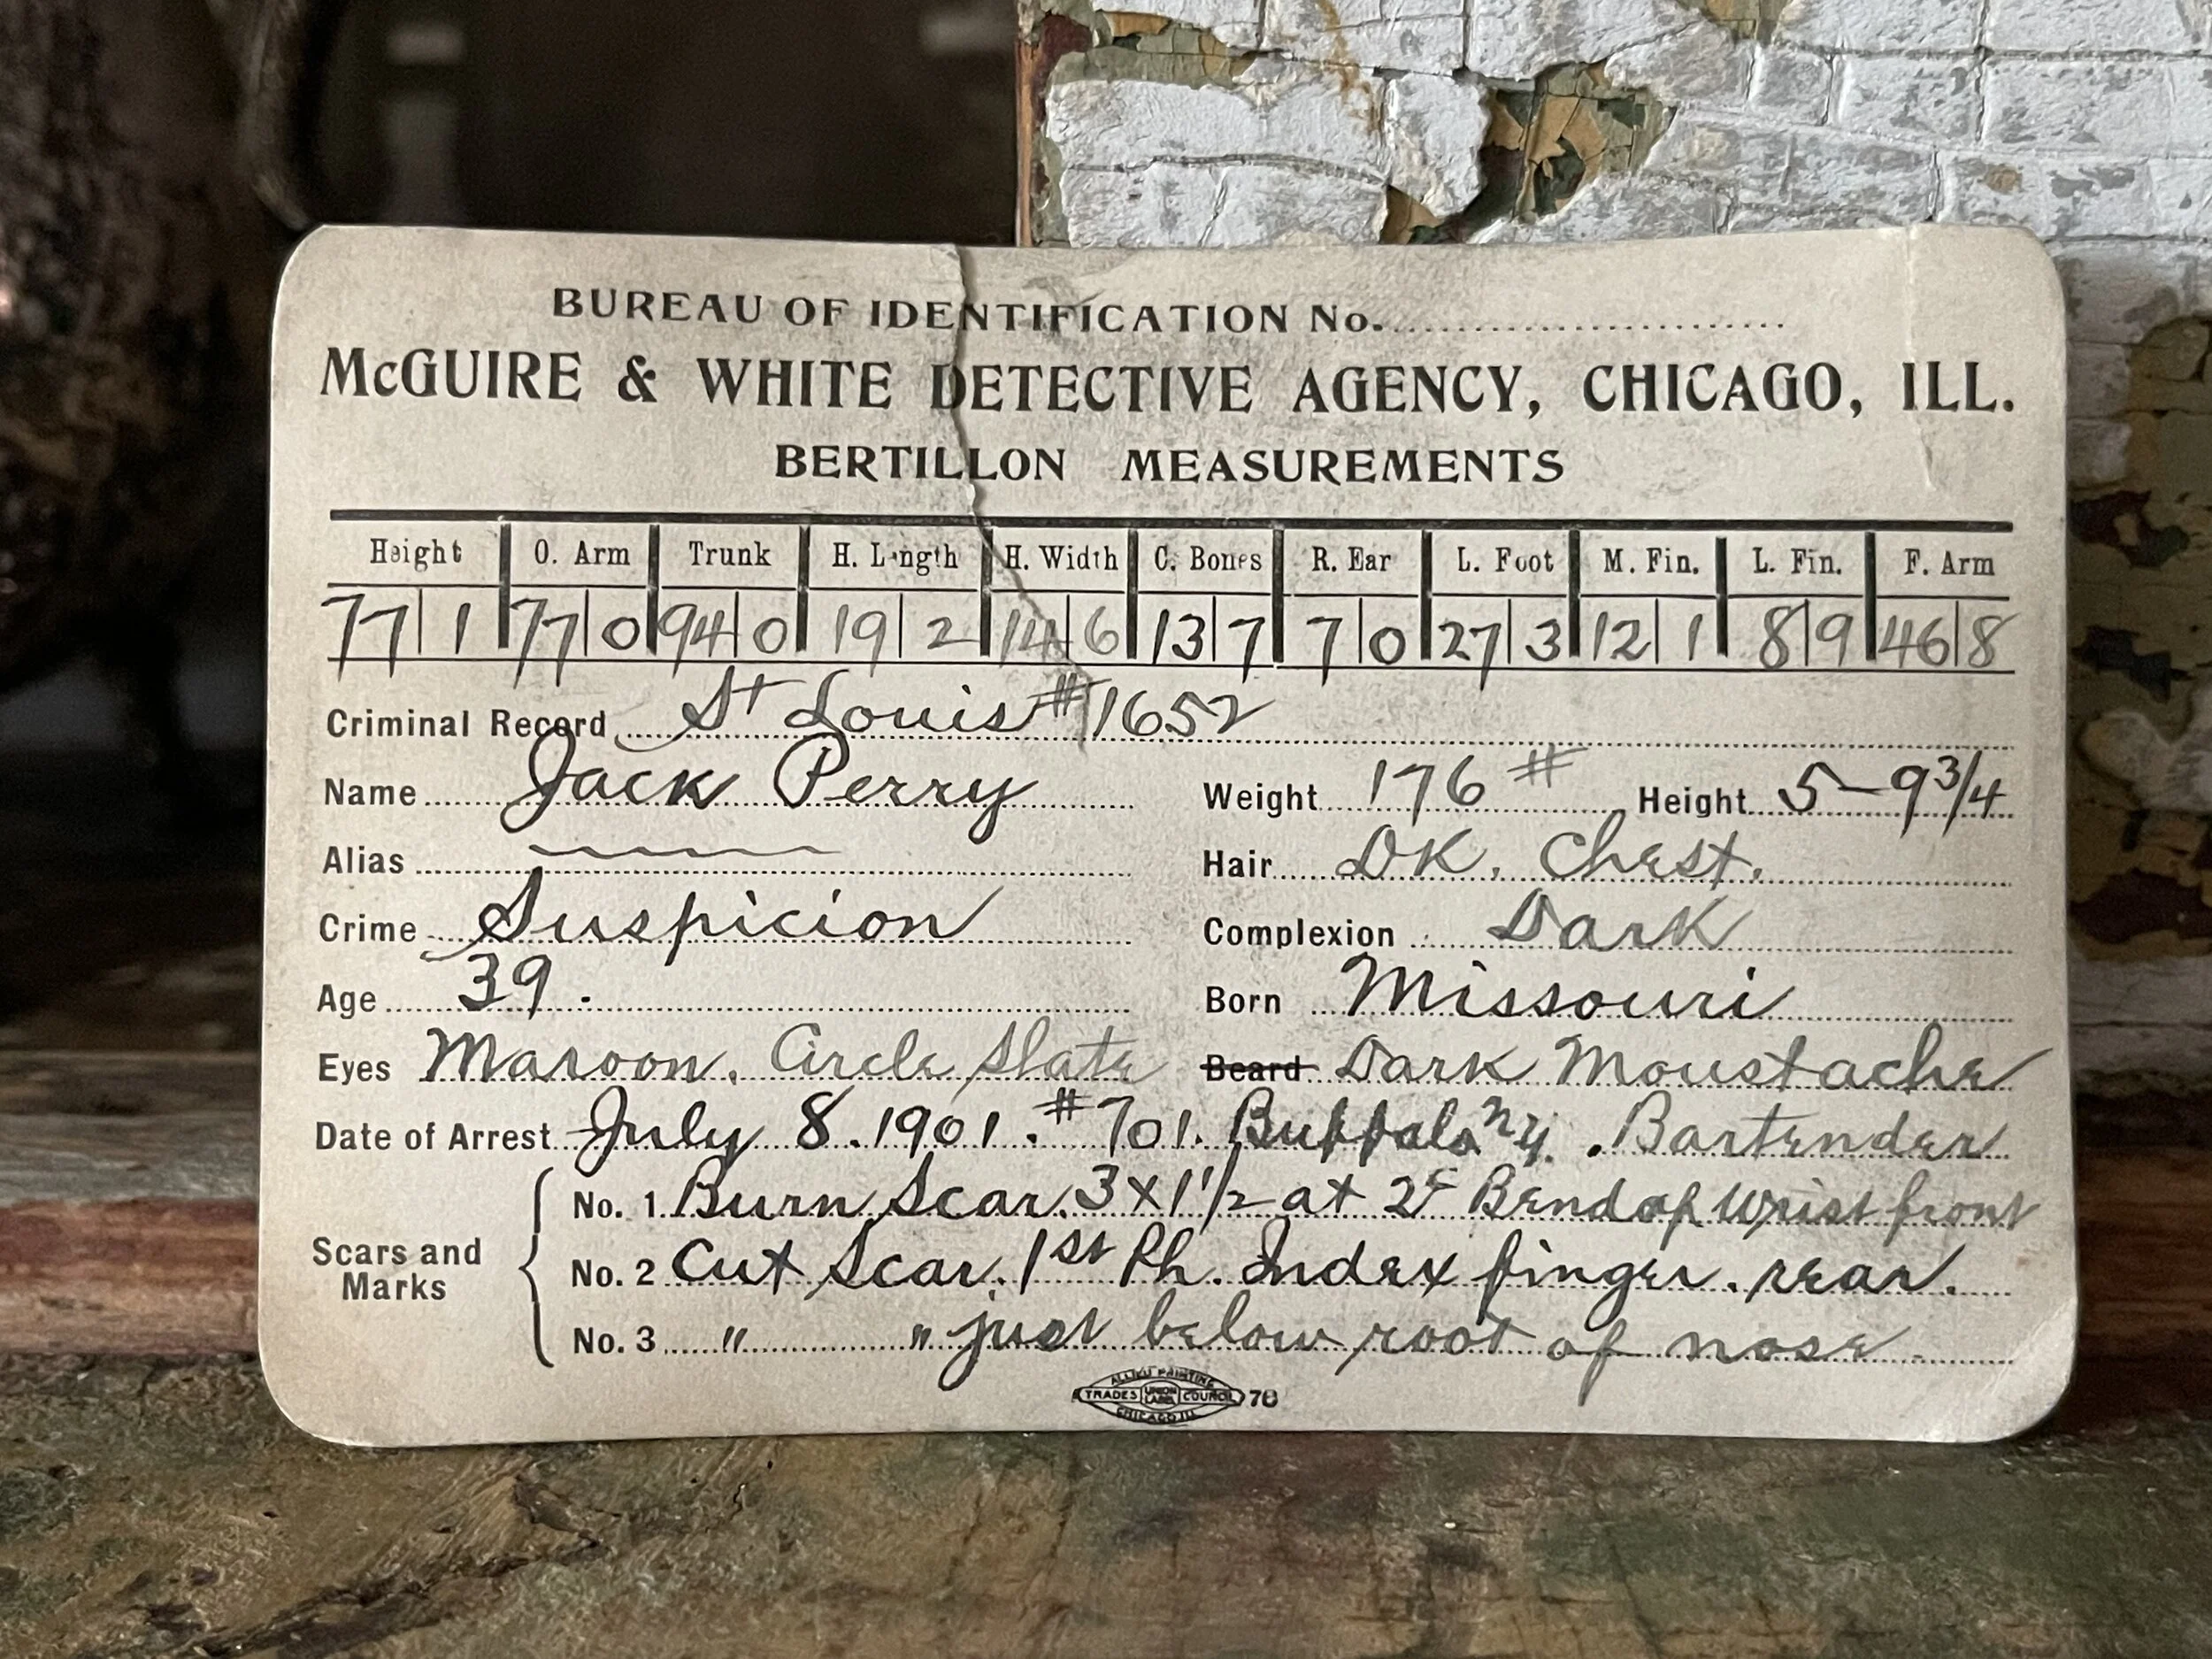 BUREAU OF IDENTIFICATION No.
McGUIRE & WHITE DETECTIVE AGENCY, CHICAGO, ILL.
BERTILLON MEASUREMENTS
Height O. Arm Trunk H. Length H. Width C. Bones R. Ear L. Foot M. Fin. L. Fin. F. Arm
77 1 77 0 94 0 19 2 14 6 13 7 7 0 27 3 12 1 8 9 46 8
Criminal Record St Louis #1652
Name Jack Perry Weight 176 # Height 5-9 3/4
Alias Hair DK. Chest.
Crime Suspicion Complexion Dark
Age 39. Born Missouri
Eyes Maroon. Circle Slate Beard Dark Moustache
Date of Arrest July 8. 1901. #701. Buffalo N.Y. Bartender
Scars and Marks
No. 1 Burn Scar. 3 x 1 1/2 at 2 Bend of Wrist front
No. 2 Cut Scar. 1st Ph. Index finger. rear.
No. 3 " " just below root of nose
ALLIED PRINTING
TRADES UNION LABEL COUNCIL 78
CHICAGO ILL